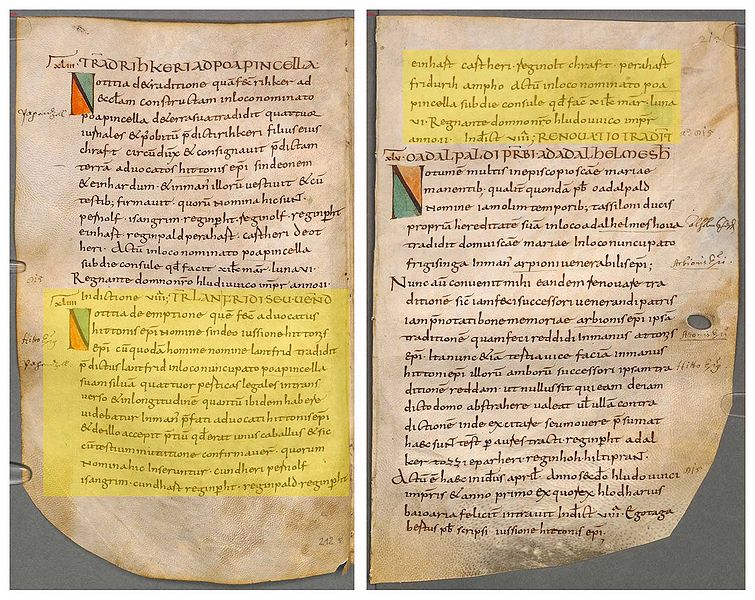 xliii. TRAD RIHKERI AD POAPINCELLA
Notitia de traditione quā fec rihker ad
ecclam constructam inloco nominato
poapincella de terra sua tradidit quattuor
iurnales & pobitu pdicti rihkeri filius eius
chraft circumdux & consignauit pdictam
terrā aduocatos hittonis epi sindeonem
& einhardum & inman illorū uestiuit & cū
testib; firmauit. quorū nomina hic sunt.
pernolf. isangrim. reginpht. reginolf. reginpht
einhart reginpald perahart. cartheri deot
heri. Actū inloco nominato poapincella
sub die consule qd facit xii kt mar. luna vi.
Regnante domno nro hludouuico impr anno ii.
Indictione viiii; TR LANTFRIDI SEU UEND
xliiii
Notitia de emptione quā fec aduocatus
hittonis epi nomine sindeo iussione hittonis
epi cū quodā homine nomine lantfrid tradidit
p dictus lantfrid inloco nuncupato poapincella
suam siluā quattuor perticas legales in trans
uerso & in longitudine quantū ibidem habere
uidebatur inman pfati aduocati hittonis epi
& de illo accepit ptiū qd erat unus caballus & sic
cū testium multitudine confirmauer. quorum
nomina hic inseruntur. cundheri pernolf
isangrim. cundhart reginpht. reginpald reginpht
242
einhart cartheri. reginolt chraft. perahart
fridurih ampho actū inloco nominato poa
pincella sub die consule qd fac xii kt mar. luna
vi. Regnante domno nro hludouuico impr
anno ii. Indict viiii; RENOUATIO TRADIT
xlv. OADALPALDI PRBI AD ADALHELMESH
Notum e multis in episcopio scae mariae
manentib. qualit quondā pb oadalpald
nomine iam olim temporib; tassiloni ducis
propriū hereditatē suā inloco adalhelmeshoua
tradidit domui scae mariae inloco nuncupato
frigisinga inman arpioni uenerabili epi;
Nunc aū conuenit mihi eandem renouare tra
ditione sic iam feci successori uenerandi patris
iam pnotati bone memoriae arbionis epi ipsa
traditionē quam feci reddidi inmanus attonis
epi. Ita nunc & iā testiuuice faciā inmanus
hittoni epi illorū amborū successori ipsam tra
ditionē reddam. ut nullus sit qui eam deiam
dicto domo abstrahere ualeat ul ulla contra
dictione inde excitare seu mouere psumat
haec sunt test p aures tracti reginpht adal
ker tozzi eparheri reginhoh. hiltipran.
Actū e haec in idus april. anno secdo hludouuici
impris & anno primo ex quo rex hlodharius
baioaria feliciter intrauit Indict viiii. Ego taga
bertus pb scripsi iussione hittonis epi;